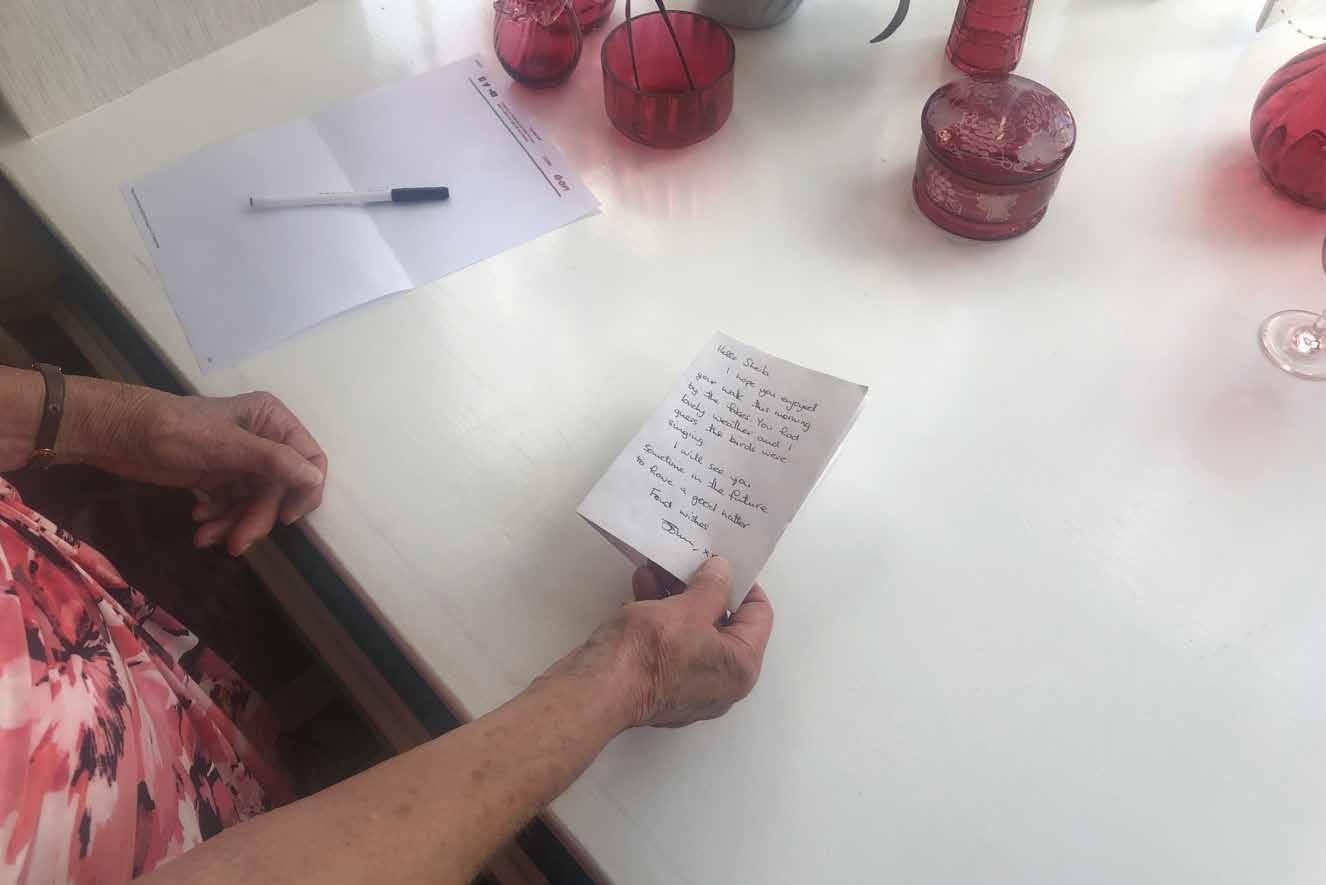 Hello Sheila
I hope you enjoyed
your walk this morning
by the lakes. You had
lovely weather and I
guess the birds were
singing.
I will see you
sometime in the future
to have a good natter
Fond wishes
xx